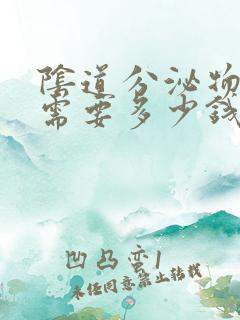 陰道分泌物
需要多少錢
凹凸蛮1
未经同意禁止转载